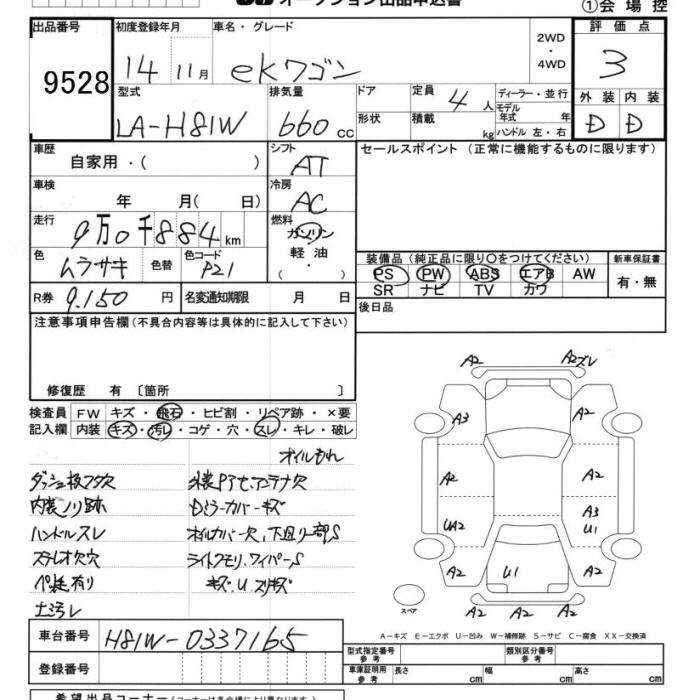 オークション出品申込書
①会場控
出品番号 初度登録年月 車名・グレード 評価点
9528 14 11月 eKワゴン 2WD ・ 4WD 3
型式 排気量 ドア 定員 4人 ディーラー・並行 外装 内装
LA-H81W 660 cc 形状 積載 kg モデル年式 年 ハンドル 左・右 D D
車歴 シフト セールスポイント (正常に機能するものに限ります)
自家用・( ) AT
車検 冷房
年 月( 日) AC
走行 燃料
9万0千884km ガソリン
軽油
・( )
色 色替 色コード
ムラサキ P21
装備品 (純正品に限り○をつけてください) 新車保証書
PS PW ABS エアB AW 有・無
SR ナビ TV カワ
R券 9,150円 名変通知期限 月 日
後日品
注意事項申告欄 (不具合内容等は具体的に記入して下さい)
修復歴 有 〔箇所 〕
検査員 FW キズ・飛石・ヒビ割・リペア跡・×要
記入欄 内装 キズ・汚レ・コゲ・穴・スレ・キレ・破レ
オイルもれ
ダッシュ板フタ欠
内装ノリ跡
ハンドルスレ
ステレオ欠穴
土汚レ
A2 A2ズレ
A3 A2
A2 A2
A3
UA2 U1
A2 U1 A2
A2 A2
スペア
A-キズ E-エクボ U-凹み W-補修跡 S-サビ C-腐食 XX-交換済
車台番号 H81W-0337165
登録番号
型式指定番号 参考 類別区分番号 参考
車庫証明用 参考 長さ cm 幅 cm 高さ cm
希望出品コーナー